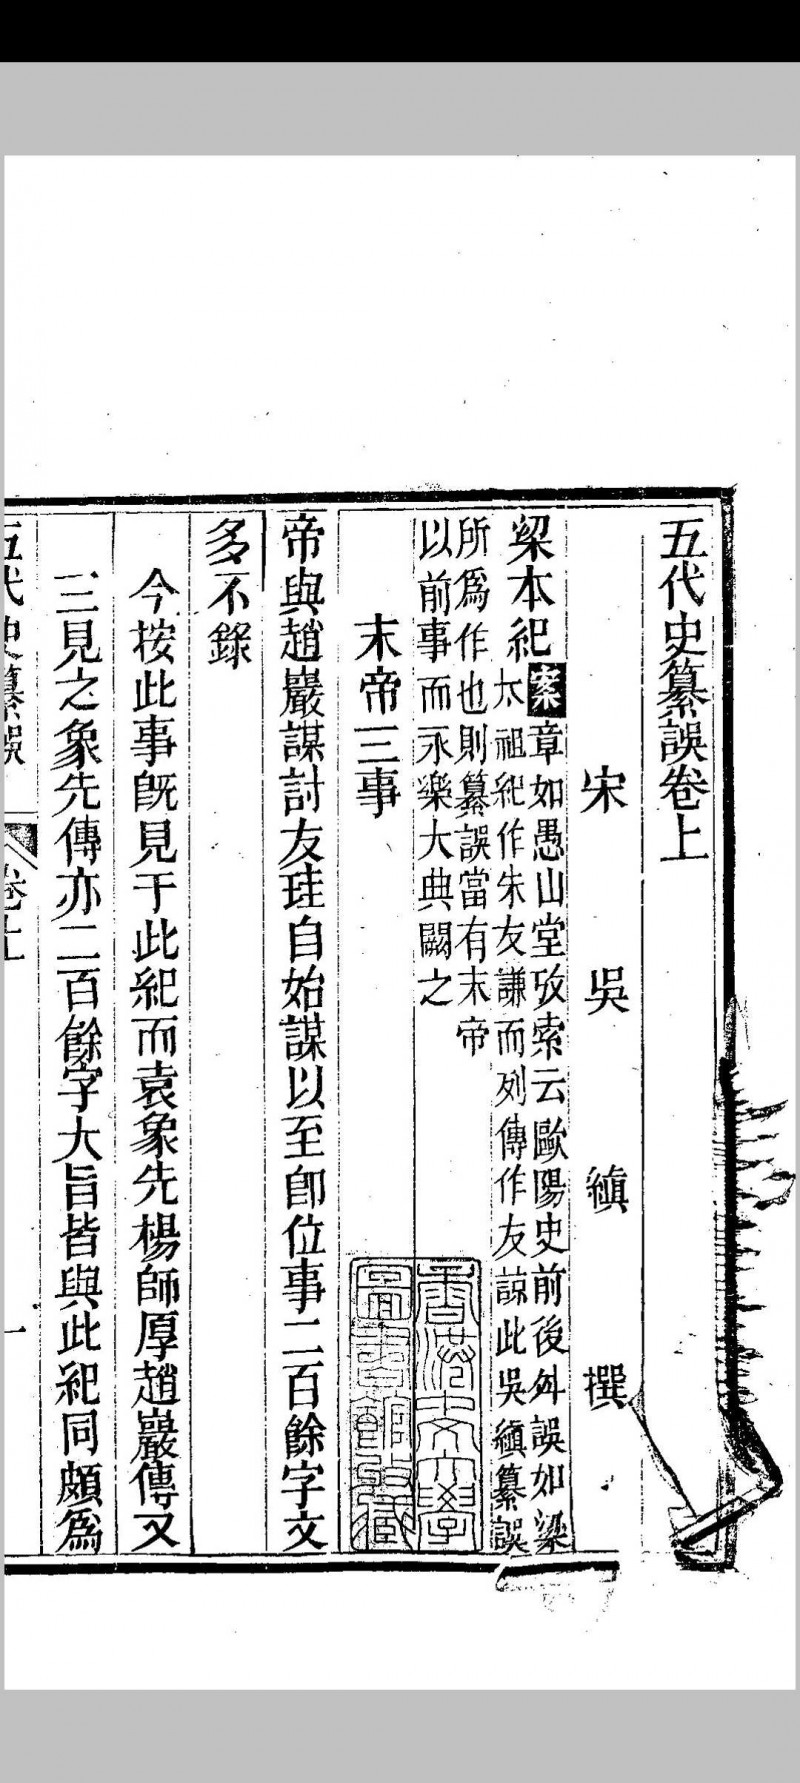 五代史纂誤卷上
宋 吳 縝 撰
梁本紀 案 章如愚山堂攷索云歐陽史前後舛誤如梁
太祖紀作朱友謙而列傳作友諒此吳縝纂誤
所爲作也則纂誤當有末帝
以前事而永樂大典闕之
末帝三事
帝與趙巖謀討友珪自始謀以至卽位事二百餘字文
多不錄
今按此事旣見于此紀而袁象先楊師厚趙巖傳又
三見之象先傳亦二百餘字大旨皆與此紀同頗爲
五代史纂誤 卷上 一
香港中文大學
圖書館藏